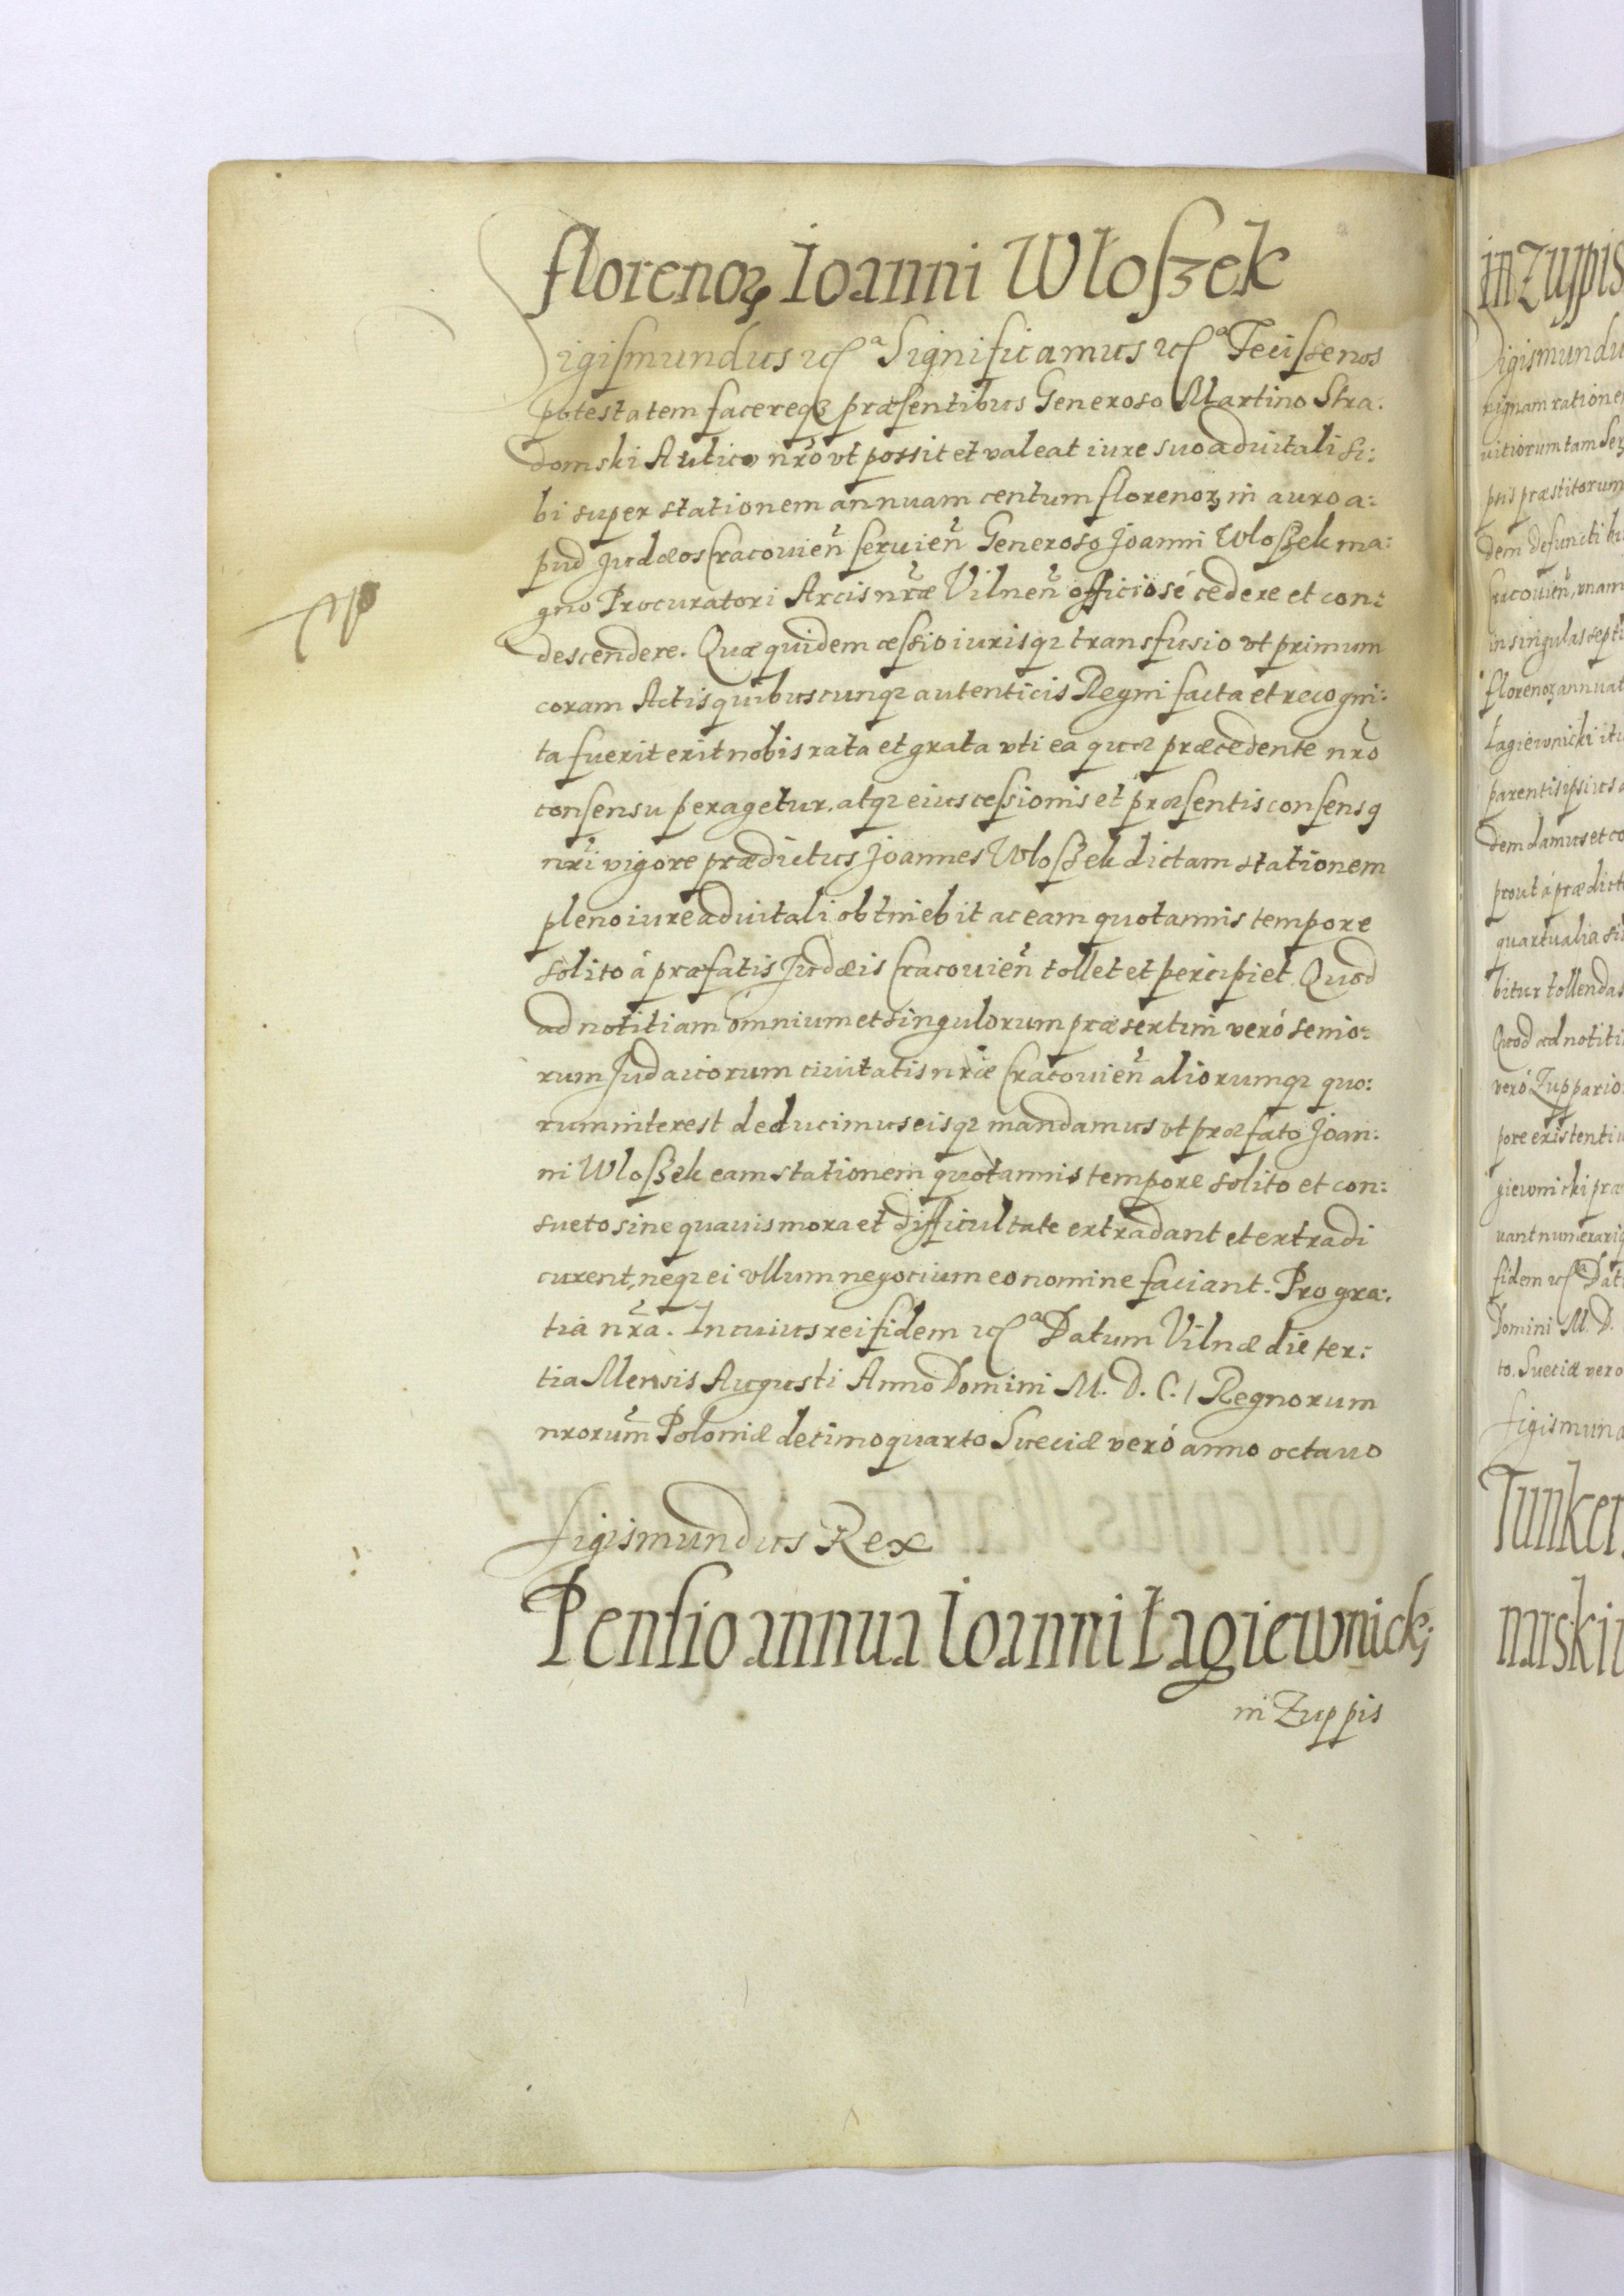 florenoꝝ Ioanni Wloſzek
Sigiſmundus ꝛcᵃ Significamus ꝛcᵃ Feciſſe nos
potestatem facereqꝫ præſentibus Generoso Martino Stra:
domski Aulico nr̃o vt possit et valeat iure suo aduitali si:
bi super stationem annuam centum florenoꝝ in auro a:
pud Judæos Cracouien̄ seruien̄ Generoso Joanni Wloſzek ma:
gno Procuratori Arcis nr̃æ Vilnen̄ officiosé cedere et con:
descendere. Quæ quidem ceſsio iurisqꝫ transfusio vt primum
coram Actis quibuscunqꝫ autenticis Regni facta et recogni:
ta fuerit erit nobis rata et grata vti ea quæ præcedente nr̃o
consensu peragetur, atqꝫ eius ceſsionis et præsentis consensꝰ
nr̃i vigore prædictus Joannes Wloſzek dictam stationem
pleno iure aduitali obtinebit ac eam quotannis tempore
solito á præfatis Judæis Cracouien̄ tollet et percipiet. Quod
ad notitiam omnium et singulorum præsertim veró senio:
rum Judaicorum ciuitatis nr̃æ Cracouien̄ aliorumqꝫ quo:
rum interest deducimus eisqꝫ mandamus vt præfato Joan:
ni Wloſzek eam stationem quotannis tempore solito et con:
sueto sine quauis mora et difficultate extradant et extradi
curent, neqꝫ ei vllum negocium eo nomine faciant. Pro gra:
tia nr̃a. In cuius rei fidem ꝛcᵃ Datum Vilnæ die ter:
tia Mensis Augusti Anno Domini M. D. C. I Regnorum
nrorum̃ Poloniæ decimoquarto Sueciæ veró anno octauo
Sigismundus Rex
Penſio annua Ioanni Łagiewnickj
in Zuppis
in Zuppis
Sigismundu
rignam ratione
uitiorum tam Ser
ptis præstitorum
dem defuncti
Cracouien̄, vnam
in singulas septi
florenoꝝ annuat
Łagiewnicki
parentis ipsius
dem damus et co
prout á prædict
quartualia
bitur tollendas
Quod ad notiti
veró Zuppario
pore existenti
giewnicki præ
uant numerari
fidem ꝛcᵃ Dat
Domini M. D.
to. Sueciæ vero
Sigismund
Junker
narski